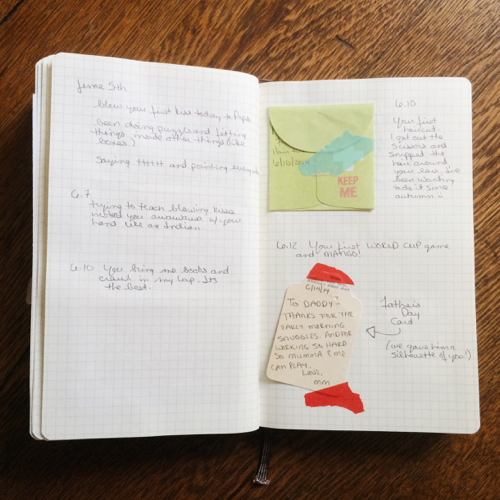 June 5th
blew your first kiss today to Papa
been doing puzzles and fitting
things inside other things (like
boxes)
Saying ttttt and pointing
6.7
trying to teach blowing kisses
instead you awawawa w/ your
hand like an Indian
6.10 You bring me books and
crawl in my lap. Its
the best.
KEEP
ME
6.10
Your first
haircut
I got out the
scissors and
snipped the
hair around
your ears. I've
been wanting
to do it since
autumn
6.12 You first WORLD CUP game
and MANGO!
6/14/14
TO DADDY
THANKS FOR THE
EARLY MORNING
SNUGGLES. AND FOR
WORKING SO HARD
SO MUMMA & ME
CAN PLAY.
LOVE,
mm
Father's
Day
Card
(we gave him a
silhouette of you!)